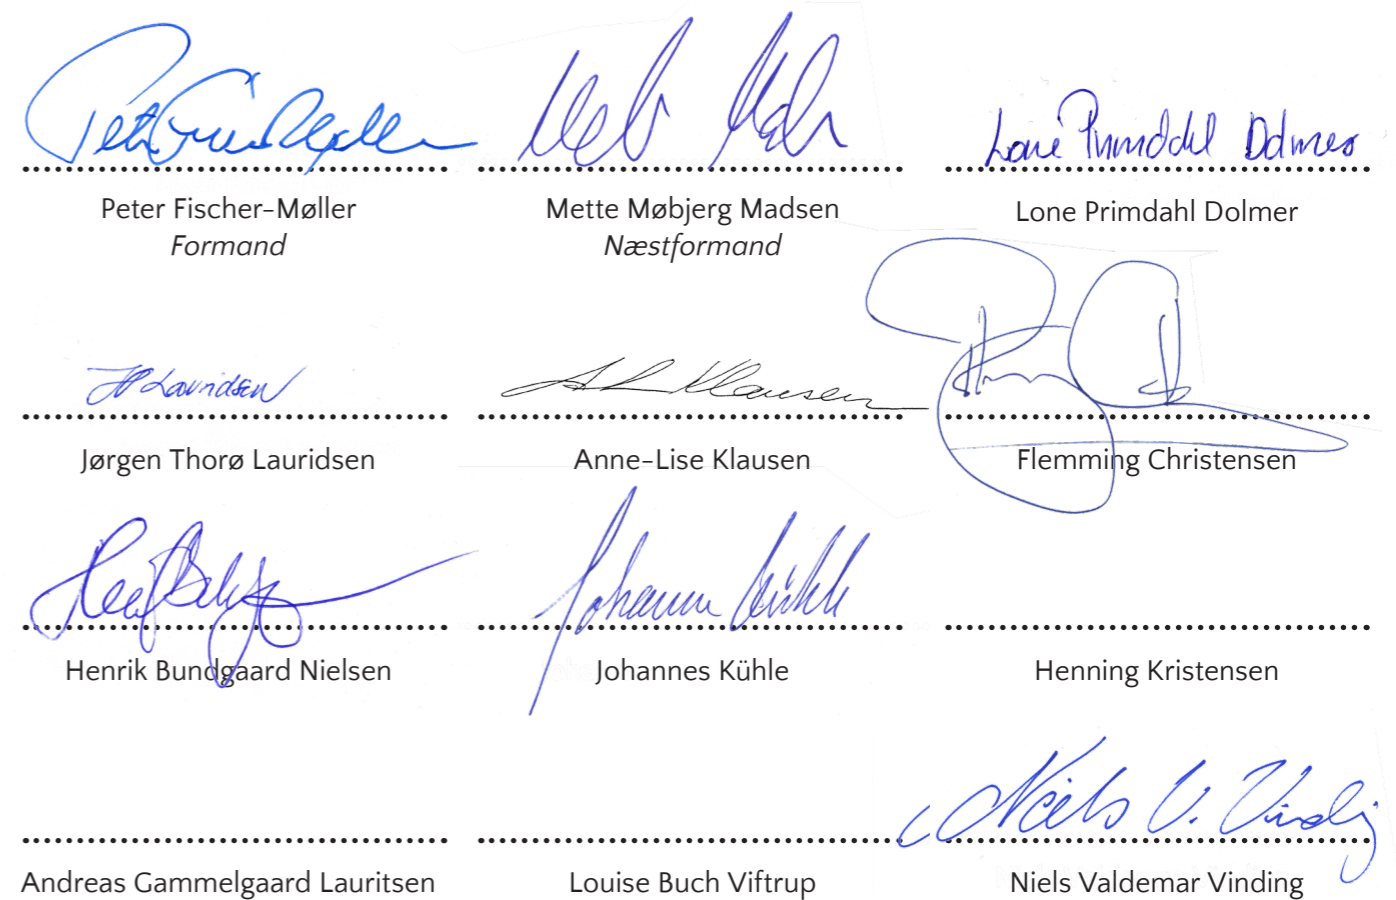 Peter Fischer-Møller
Formand
Mette Møbjerg Madsen
Næstformand
Lone Primdahl Dolmer
Lone Primdahl Dolmer
JT Lauridsen
Jørgen Thorø Lauridsen
A L Klausen
Anne-Lise Klausen
Flemming Christensen
Henrik Bundgaard Nielsen
Johannes Kühle
Johannes Kühle
Henning Kristensen
Andreas Gammelgaard Lauritsen
Louise Buch Viftrup
Niels V. Vinding
Niels Valdemar Vinding